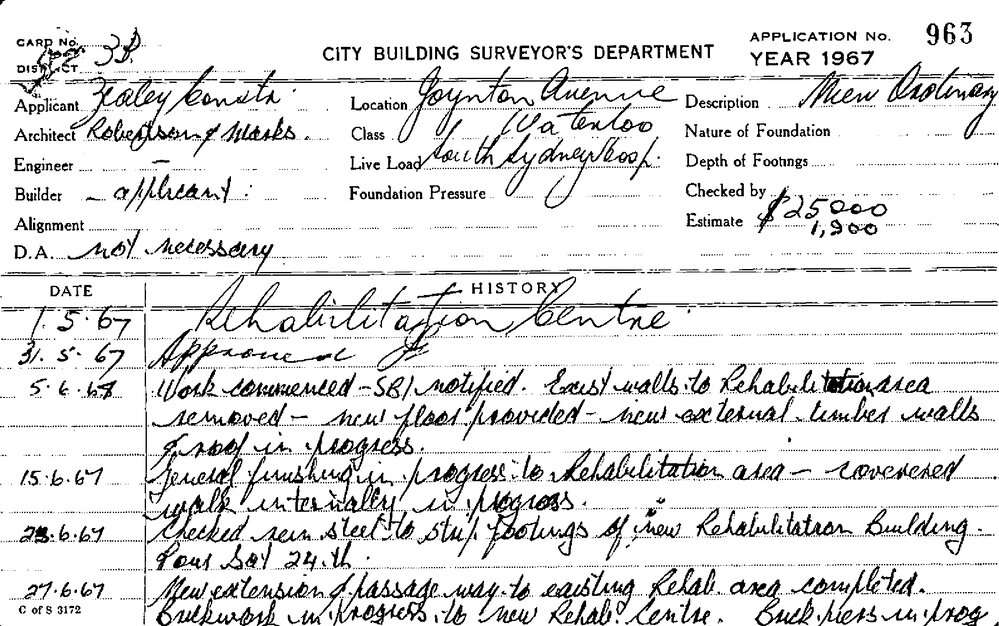 CARD No.
DISTRICT 3B
CITY BUILDING SURVEYOR'S DEPARTMENT
APPLICATION No. 963
YEAR 1967
Applicant Zealey Constr. Location Joynton Avenue Description New Ordinary
Architect Robertson & Marks. Class Waterloo Nature of Foundation
Engineer - Live Load South Sydney Hosp. Depth of Footngs
Builder - applicant. Foundation Pressure Checked by
Alignment Estimate $25000
1,900
D.A. not necessary
DATE HISTORY
1.5.67 Rehabilitation Centre
31.5.67 Approved
5.6.67 Work commenced - SBI notified. Exist walls to Rehabilitation area
removed - new floor provided - new external timber walls
& roof in progress.
15.6.67 General finishing in progress to Rehabilitation area - coverered
walk internally in progress.
23.6.67 Checked rein steel to strip footings of new Rehabilitation Building.
Pour Sat 24.th.
27.6.67 New extension & passage way to existing Rehab. area completed.
C of S 3172
Brickwork in progress to new Rehab. Centre. Brick piers in prog.